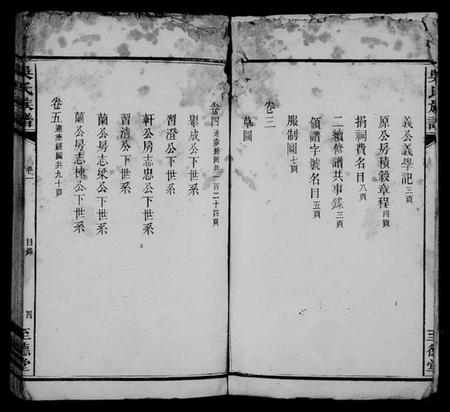 吳氏族譜
義公義學記三頁
原公房積穀章程四頁
捐祠費名目八頁
二續修譜共事錄三頁
領譜字號名目五頁
卷三
服制圖七頁
墓圖
至德堂
卷四連垂絲圖共一百二十四頁
成公下世系
習澄公下世系
軒公房志忠公下世系
習清公下世系
蘭公房志梁公下世系
蘭公房志棟公下世系
卷五連垂絲圖共九十頁
吳氏族譜
卷一
目錄
四
至德堂